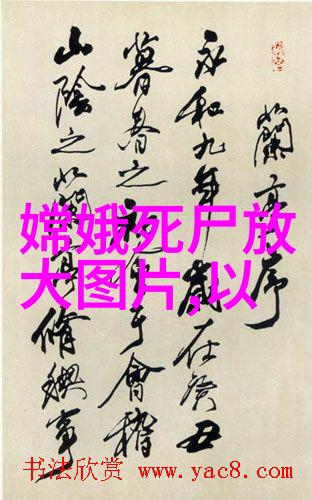 蘭亭序
永和九年歲在癸丑
暮春之初會于會稽
山陰之蘭亭脩禊事
嫦娥死尸放
大图片,以
书法欣赏 www.yac8.com